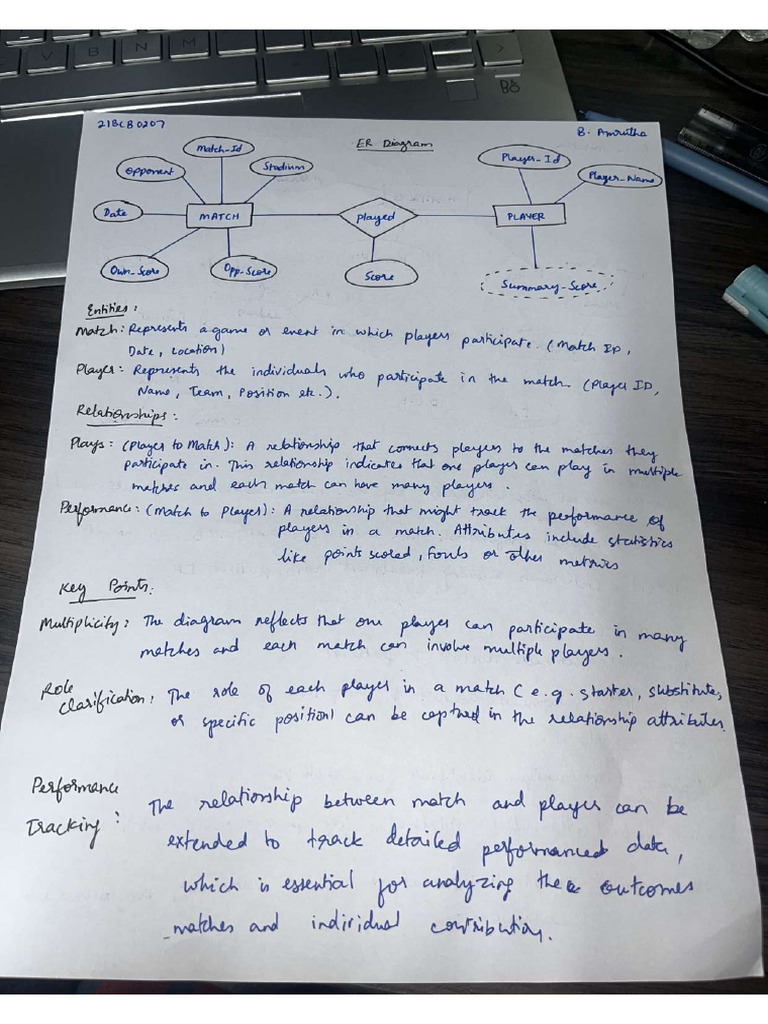 V B N M
21BCB0207
B. Amrutha
ER Diagram
Match_Id
Opponent
Stadium
Date
MATCH
Own_Score
Opp_Score
played
Score
Player_Id
Player_Name
PLAYER
Summary_Score
Entities:
Match: Represents a game or event in which players participate. (Match ID,
Date, Location)
Player: Represents the individuals who participate in the match. (Player ID,
Name, Team, Position etc.).
Relationships:
Plays: (Player to Match): A relationship that connects players to the matches they
participate in. This relationship indicates that one player can play in multiple
matches and each match can have many players.
Performance: (Match to Player): A relationship that might track the performance of
players in a match. Attributes include statistics
like points scored, Fouls or other metrics
Key Points:
Multiplicity: The diagram reflects that one player can participate in many
matches and each match can involve multiple players.
Role
Clarification: The role of each player in a match (e.g. starter, substitute,
or specific position) can be captured in the relationship attributes.
Performance
Tracking: The relationship between match and player can be
extended to track detailed performanced data,
which is essential for analyzing the outcomes
matches and individual contribution.